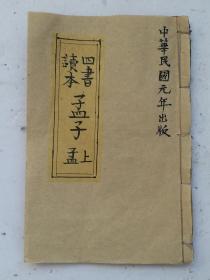 中華民國元年出版
四書
讀本
孟子
上
孟